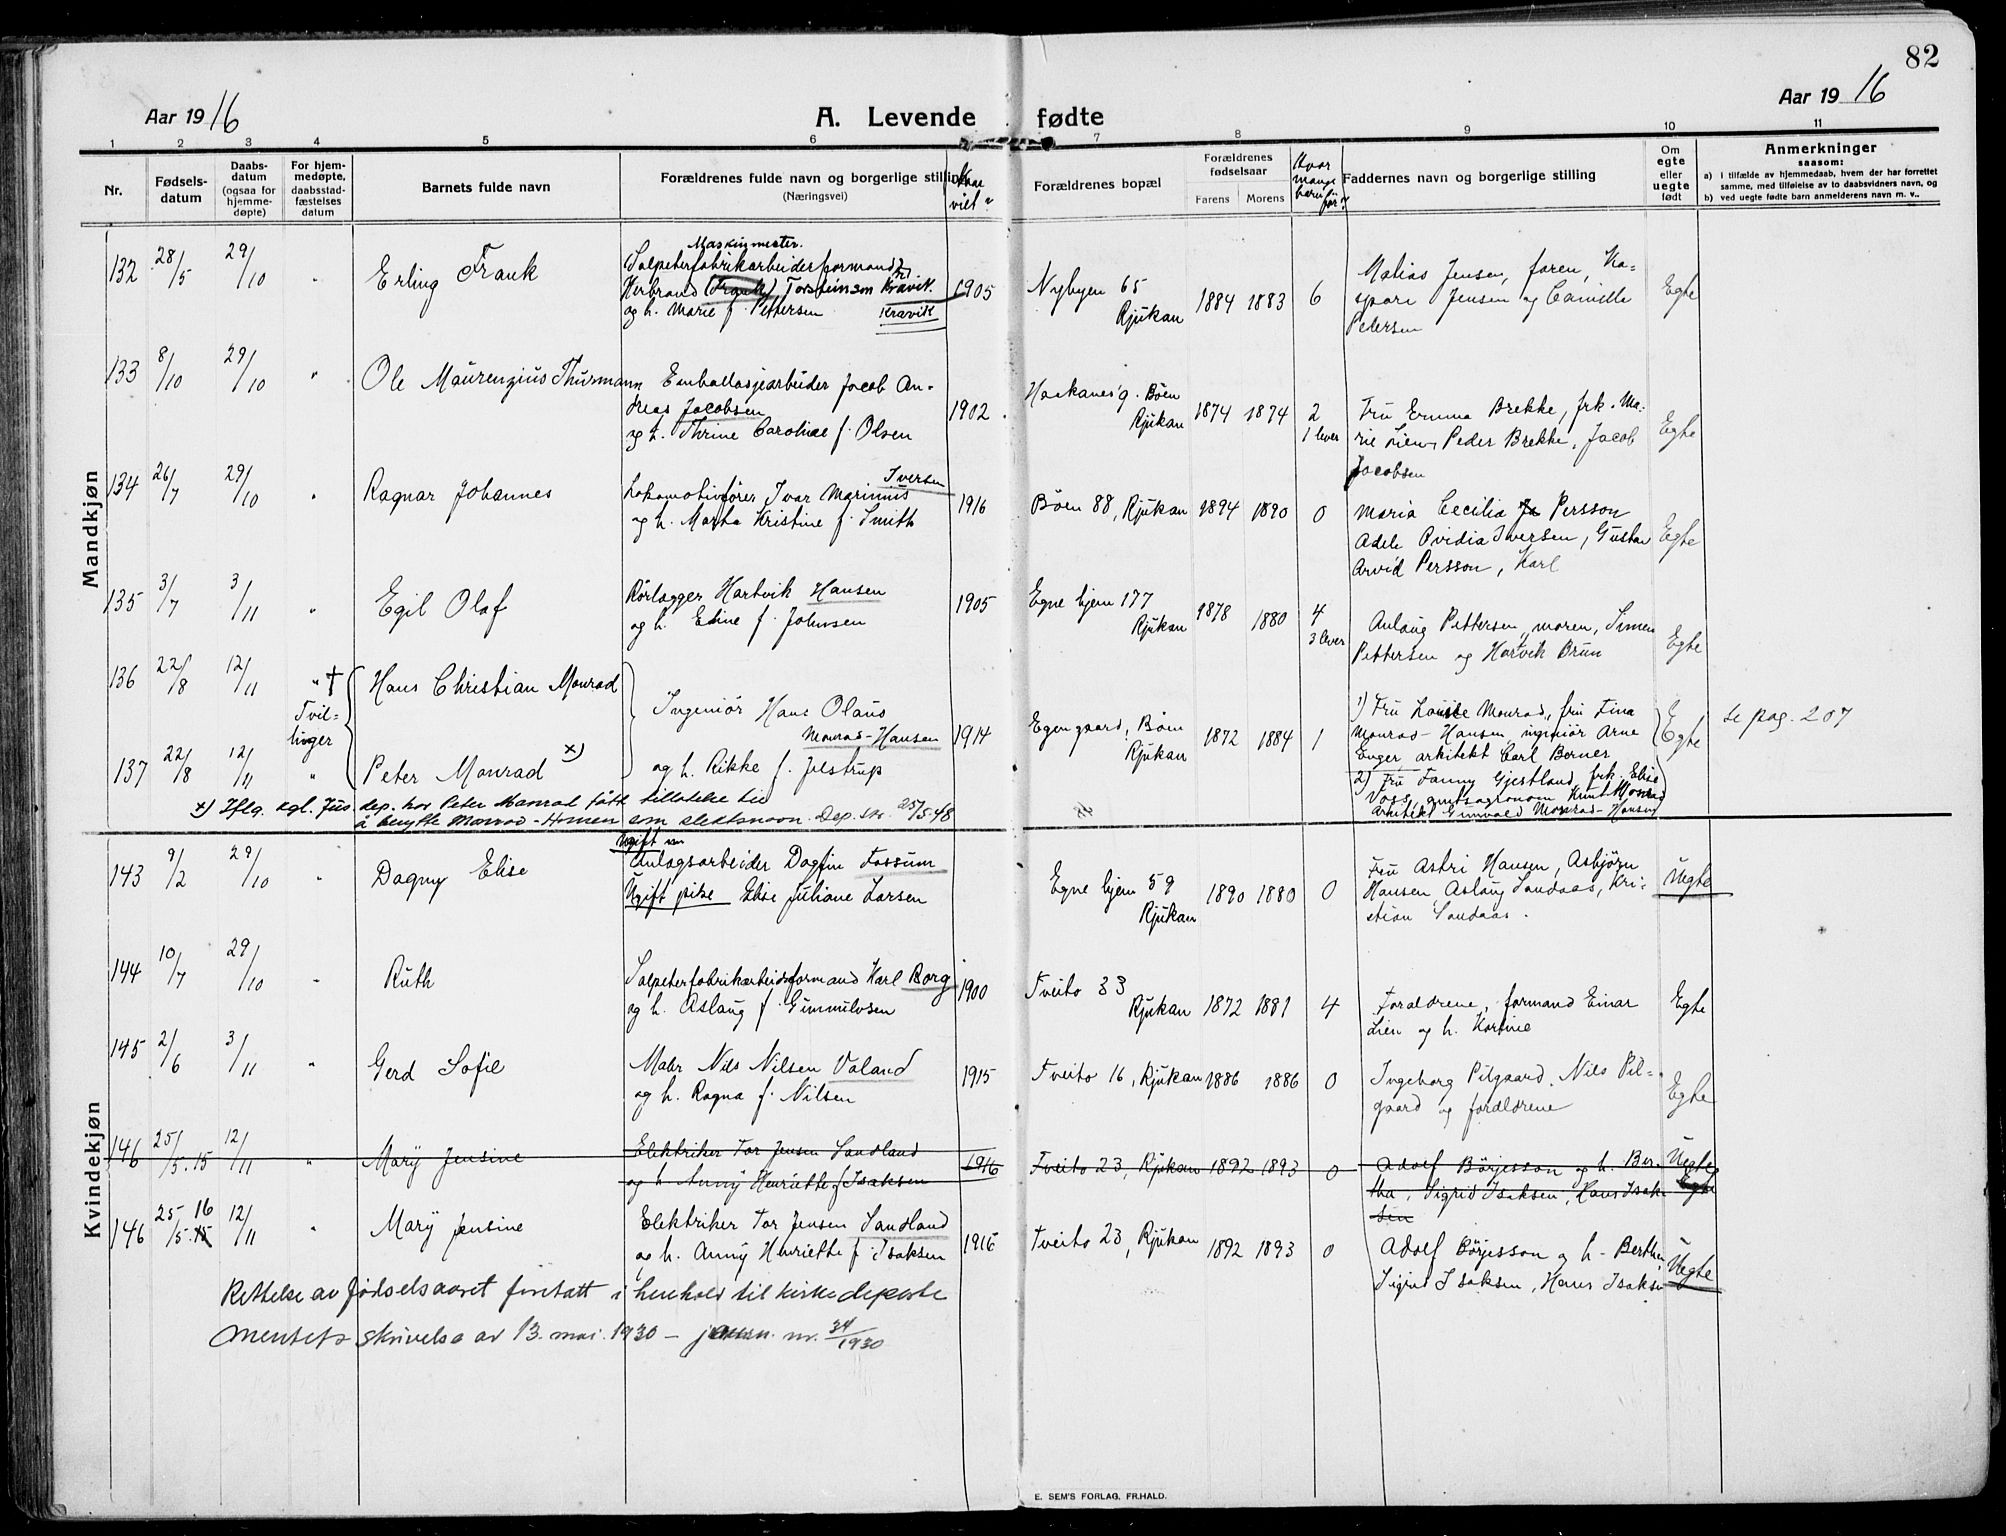 82
Aar 1916
A. Levende fødte
Aar 1916
1 2 3 4 5 6 7 8 9 10 11
Nr.
Fødsels-
datum
Daabs-
datum
(ogsaa for
hjemme-
døpte)
For hjem-
medøpte,
daabsstad-
fæstelses
datum
Barnets fulde navn
Forældrenes fulde navn og borgerlige stilling
(Næringsvei)
Naar
viet?
Forældrenes bopæl
Forældrenes
fødselsaar
Farens Morens
Hvor
mange
barn
før?
Faddernes navn og borgerlige stilling
Om
egte
eller
uegte
født
Anmerkninger
saasom:
a) i tilfælde av hjemmedaab, hvem der har forrettet
samme, med tilføielse av to daabsvidners navn, og
b) ved uegte fødte barn anmelderens navn m. v..
Mandkjøn
132 28/5 29/10 " Erling Frank
Maskinmester.
Salpeterfabrikarbeiderformand
Herbrand (Frank) Torsteinson Kravik
og h. Marie f. Pettersen Kravik
1905 Nybyen 65
Rjukan
1884 1883 6
Matias Jensen, faren, Ka-
spara Jensen og Camilla
Pedersen
Egte
133 8/10 29/10 " Ole Maurenzius Thurmann
Emballasjearbeider Jacob An-
dreas Jacobsen
og h. Thrine Caroline f. Olsen
1902
Haakanes'g. Bøen
Rjukan
1874 1874 2
1 lever
Fru Emma Brekke, frk. Ma-
rie Lien, Peder Brekke, Jacob
Jacobsen
Egte
134 26/7 29/10 " Ragnar Johannes
Lokomotivfører Ivar Marinius Iversen
og h. Marta Kristine f. Smith
1916 Bøen 88, Rjukan 1894 1890 0
Maria Cecilia Persson
Adele Ovidia Iversen, Gustav
Arvid Persson, Karl
Egte
135 3/7 3/11 " Egil Olaf
Rørlægger Hartvik Hansen
og h. Eline f. Johnsen
1905 Egne hjem 177
Rjukan
1878 1880 4
3 lever
Aslaug Pettersen, moren, Simen
Pettersen og Hartvik Brun
Egte
136 22/8 12/11 " † Hans Christian Monrad
Tvil-
linger
137 22/8 12/11 " Peter Monrad x)
Ingeniør Hans Olaus
Monrad-Hansen
og h. Rikke f. Jelstrup
1914 Egen gaard, Bøen
Rjukan
1872 1884 1
1) Fru Louise Monrad, fru Fina
Monrad-Hansen, ingeniør Arne
Enger, arkitekt Carl Berner
2) Fru Fanny Gjestland, frk. Elise
Voss, amtsagronom Knut Monrad
Arkitekt Gunvald Monrad-Hansen
Egte
se pag. 207
x) Iflg. kgl. Jus. dep. har Peter Monrad fått tillatelse til
å benytte Monrad-Hansen som slektsnavn. Dep. skr. 25/5-48
Kvindekjøn
143 9/2 29/10 " Dagny Elise
Ugift m
Anlægsarbeider Dagfin Fossum
Ugift pike Elise Juliane Larsen
Egne hjem 59
Rjukan
1890 1880 0
Fru Astri Hansen, Asbjørn
Hansen, Aslaug Sandaas, Kri-
stian Sandaas.
Uegte
144 10/7 29/10 " Ruth
Salpeterfabrikarbeiderformand Karl Borg
og h. Aslaug f. Gunnulvsen
1900 Tveito 33
Rjukan
1872 1881 4
Forældrene, formand Einar
Lien og h. Karine
Egte
145 2/6 3/11 " Gerd Sofie
Maler Nils Nilsen Valand
og h. Ragna f. Nilsen
1915 Tveito 16, Rjukan 1886 1886 0
Ingeborg Pilgaard, Nils Pil-
gaard og forældrene
Egte
146 25/5.15 12/11 " Mary Jensine
Elektriker Tor Jensen Sandland
og h. Anny Henriette f. Isaksen
1916 Tveito 23, Rjukan 1892 1893 0
Adolf Börjesson og h. Ber-
tha, Sigrid Isaksen, Hans Isak-
sen
Uegte
Egte
146 25/5.15 16 12/11 " Mary Jensine
Elektriker Tor Jensen Sandland
og h. Anny Henriette f. Isaksen
1916 Tveito 23, Rjukan 1892 1893 0
Adolf Börjesson og h. Bertha
Sigrid Isaksen, Hans Isaksen
Uegte
Rettelse av fødselsaaret foretatt i henhold til kirkedeparte
mentets skrivelse av 13. mai. 1930 – journ. nr. 34/1930
E. SEM'S FORLAG, FR.HALD.